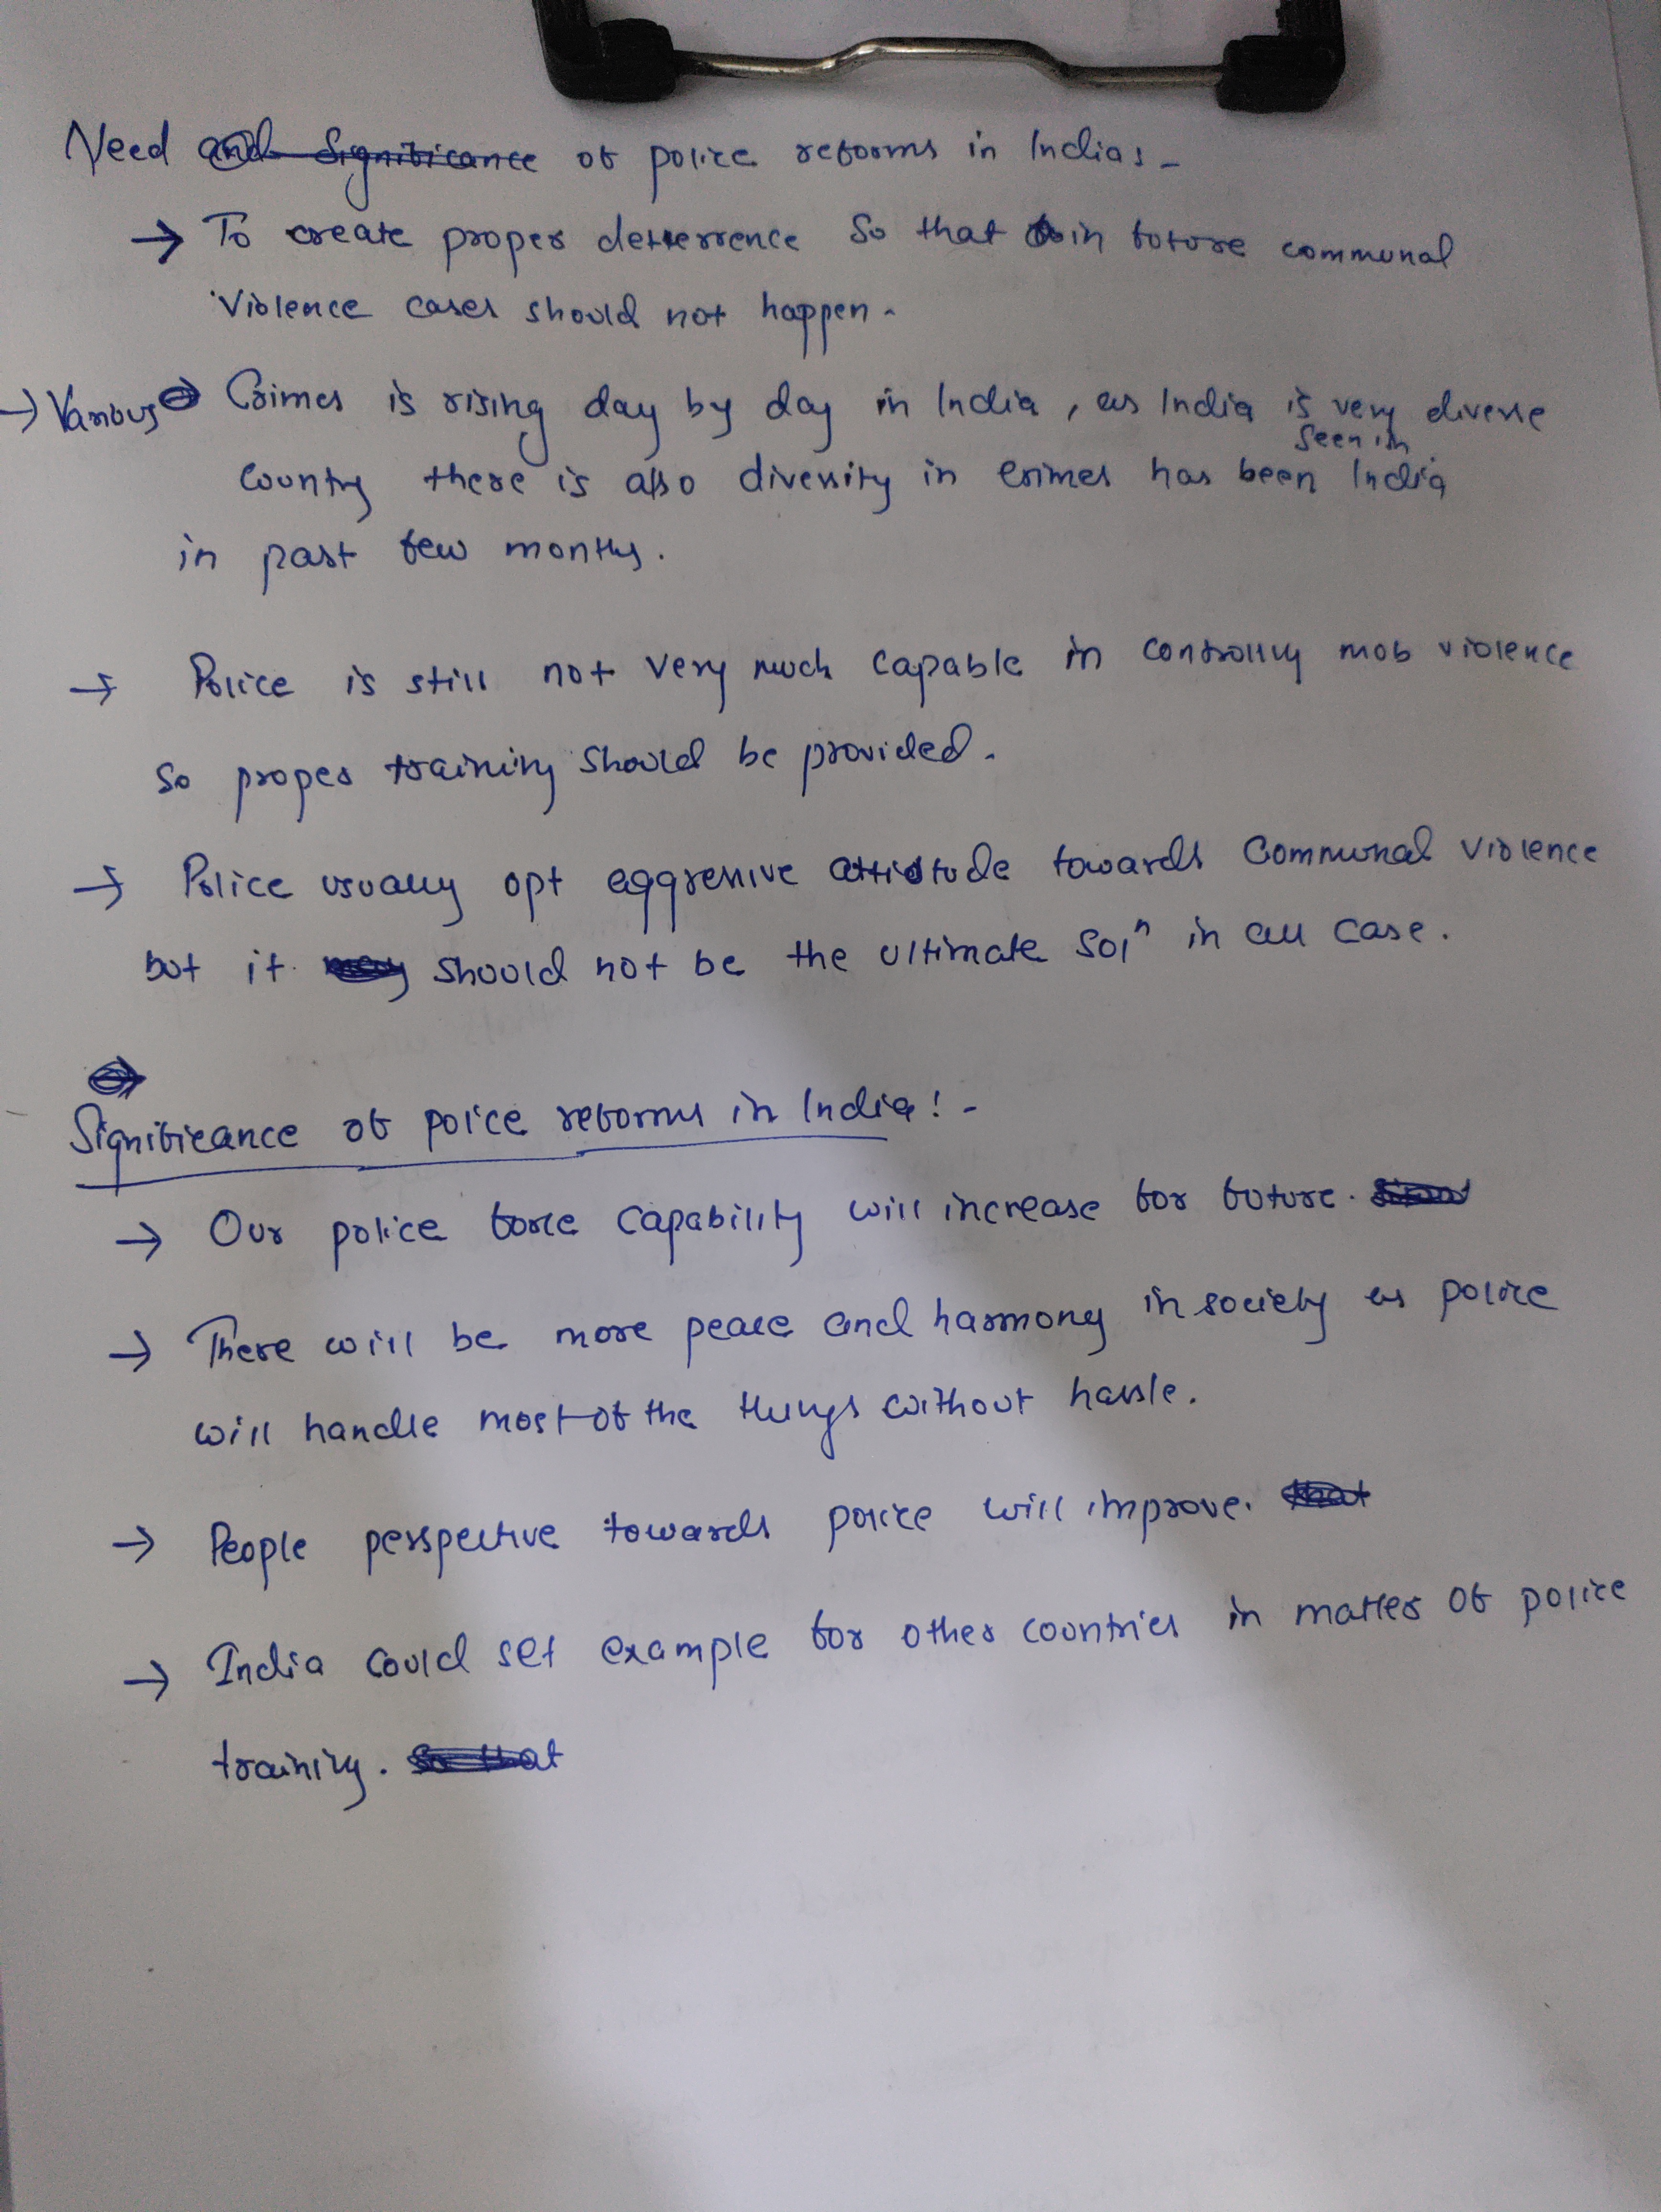 Need and Significance of police reforms in India :-
→ To create proper deterrence so that in future communal
violence cases should not happen.
→ Various Crimes is rising day by day in India, as India is very diverse
seen in
country there is also diversity in crimes has been India
in past few months.
→ Police is still not very much capable in controlling mob violence
so proper training should be provided.
→ Police usually opt aggressive attitude towards communal violence
but it may should not be the ultimate solⁿ in all case.
Significance of police reforms in India! -
→ Our police force capability will increase for future.
→ There will be more peace and harmony in society as police
will handle most of the things without hassle.
→ People perspective towards police will improve. that
→ India could set example for other countries in matter of police
training. So that